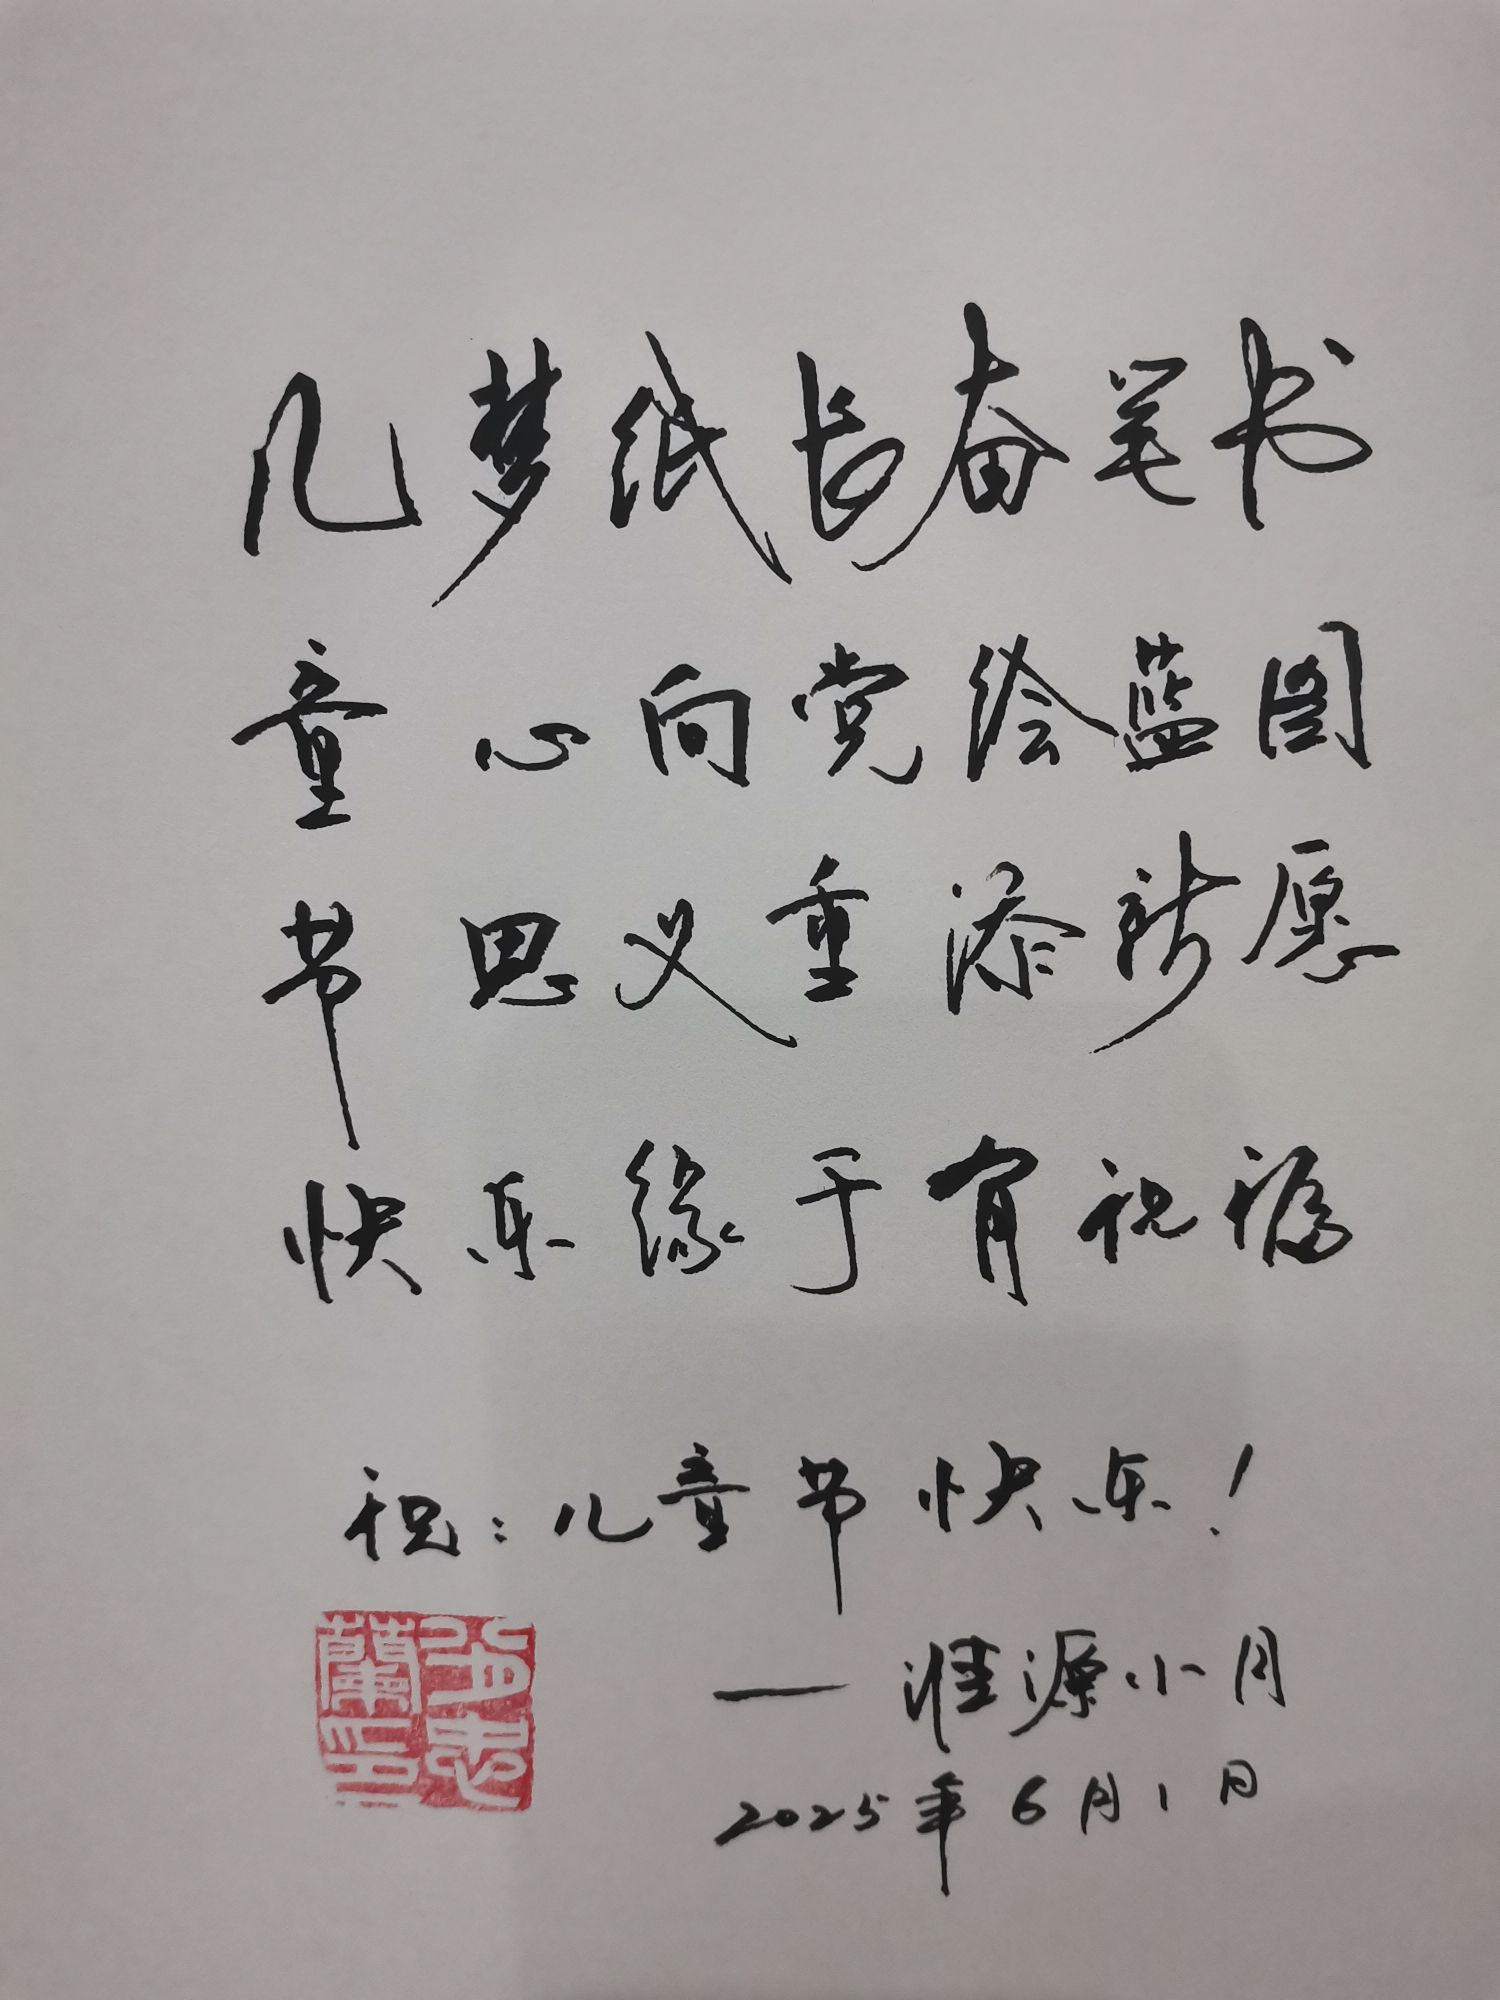 儿梦纸长奋笔书
童心向党绘蓝图
节思义重添新愿
快乐缘于有祝福
祝:儿童节快乐!
—淮源小月
2025年6月1日